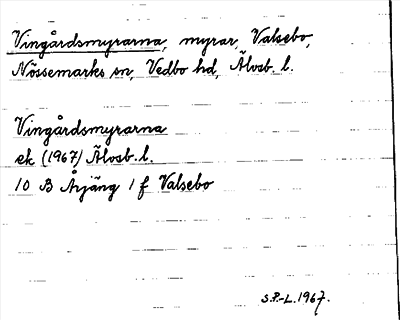 Vingårdsmyrarna, myrar, Valsebo,
Nössemarks sn, Vedbo hd, Älvsb. l.
Vingårdsmyrarna
ek (1967) Älvsb. l.
10 B Årjäng 1 f Valsebo
S.P.-L. 1967.